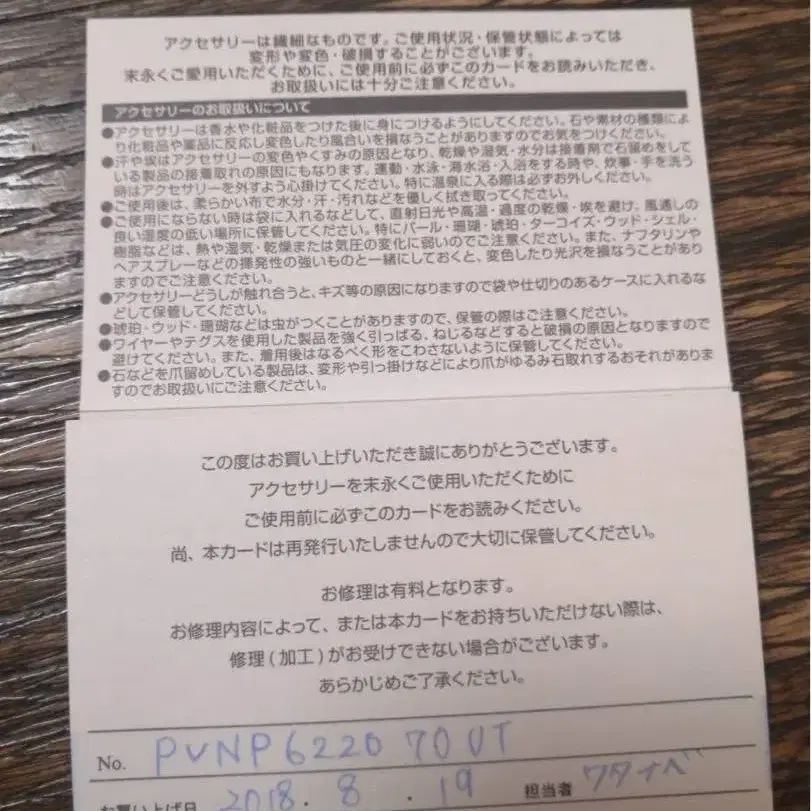 アクセサリーは繊細なものです。ご使用状況・保管状態によっては
変形や変色・破損することがございます。
末永くご愛用いただくために、ご使用前に必ずこのカードをお読みいただき、
お取扱いには十分ご注意ください。
アクセサリーのお取扱いについて
●アクセサリーは香水や化粧品をつけた後に身につけるようにしてください。石や素材の種類によ
り化粧品や薬品に反応し変色したり風合いを損なうことがありますのでお気をつけください。
●汗や埃はアクセサリーの変色やくすみの原因となり、乾燥や湿気・水分は接着剤で石留めをして
いる製品の接着取れの原因にもなります。運動・水泳・海水浴・入浴をする時や、炊事・手を洗う
時はアクセサリーを外すよう心掛けてください。特に温泉に入る際は必ずお外しください。
●ご使用後は、柔らかい布で水分・汗・汚れなどを優しく拭き取ってください。
●ご使用にならない時は袋に入れるなどして、直射日光や高温・過度の乾燥・埃を避け、風通しの
良い湿度の低い場所に保管してください。特にパール・珊瑚・琥珀・ターコイズ・ウッド・シェル・
樹脂などは、熱や湿気・乾燥または気圧の変化に弱いのでご注意ください。また、ナフタリンや
ヘアスプレーなどの揮発性の強いものと一緒にしておくと、変色したり光沢を損なうことがあり
ますのでご注意ください。
●アクセサリーどうしが触れ合うと、キズ等の原因になりますので袋や仕切りのあるケースに入れるな
どして保管してください。
●琥珀・ウッド・珊瑚などは虫がつくことがありますので、保管の際はご注意ください。
●ワイヤーやテグスを使用した製品を強く引っぱる、ねじるなどすると破損の原因となりますので
避けてください。また、着用後はなるべく形をこわさないように保管してください。
●石などを爪留めしている製品は、変形や引っ掛けなどにより爪がゆるみ石取れするおそれがありま
すのでお取扱いにご注意ください。
この度はお買い上げいただき誠にありがとうございます。
アクセサリーを末永くご使用いただくために
ご使用前に必ずこのカードをお読みください。
尚、本カードは再発行いたしませんので大切に保管してください。
お修理は有料となります。
お修理内容によって、または本カードをお持ちいただけない際は、
修理(加工)がお受けできない場合がございます。
あらかじめご了承ください。
No. PVNP6220 70UT
お買い上げ日 2018. 8 . 19 担当者 ワタナベ